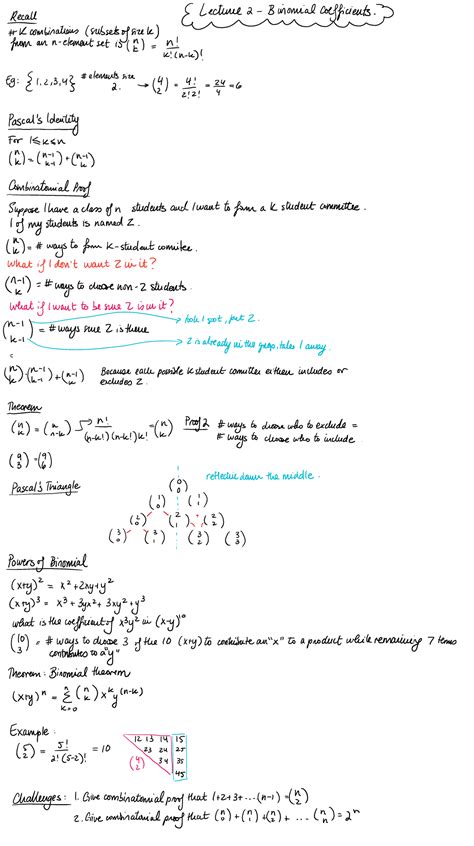 Lecture 2 - Binomial Coefficients.
Recall
# K combinations (subsets of size k)
from an n-element set is (n k) = n! / k!(n-k)!
Eg: {1,2,3,4} # elements size 2. → (4 2) = 4!/2!2! = 24/4 = 6
Pascal's Identity
For 1≤k≤n
(n k) = (n-1 k-1) + (n-1 k)
Combinatorial Proof
Suppose I have a class of n students and I want to form a k student committee.
1 of my students is named Z.
(n k) = # ways to form k-student comittee.
what if I don't want Z in it?
(n-1 k) = # ways to choose non-Z students.
what if I want to be sure Z is in it?
(n-1 k-1) = # ways sure Z is there
→ hold 1 spot, put Z.
→ Z is already in the group, takes 1 away.
(n k) = (n-1 k-1) + (n-1 k) Because each possible k student comittee either includes or
excludes Z.
Theorem
(n k) = (n n-k) → n! / (n-k!)(n-k!)k! = (n k) Proof 2 # ways to choose who to exclude =
# ways to choose who to include
(9 3) = (9 6)
Pascal's Triangle
reflective down the middle.
(0 0)
(1 0) (1 1)
(2 0) (2 1) (2 2)
(3 0) (3 1) (3 2) (3 3)
Powers of Binomial
(x+y)² = x² + 2xy + y²
(x+y)³ = x³ + 3yx² + 3xy² + y³
what is the coefficient of x³y² in (x-y)¹⁰
(10 3) = # ways to choose 3 of the 10 (x+y) to contribute an "x" to a product while remaining 7 terms
contributes to a "y"
Theorem: Binomial theorem
(x+y)ⁿ = Σ k=0 n (n k) xᵏ y⁽ⁿ⁻ᵏ⁾
Example:
(5 2) = 5! / 2!(5-2)! = 10
12 13 14 15
23 24 25
(4 2) 34 35
45
Challenges: 1. Give combinatorial proof that 1+2+3+...(n-1) = (n 2)
2. Give combinatorial proof that (n 0) + (n 1) + (n 2) + ... (n n) = 2ⁿ